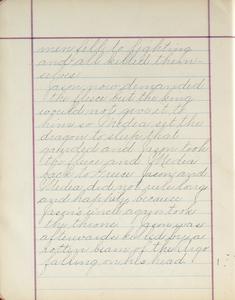 men fell to fighting
and all killed them-
selves
Jason now demanded
the fleece but the king
would not give it to
him so Medea set the
dragon to sleep that
guarded and Jason took
the fleece and Medea
back to Greece Jason and
Medea did not rule long
and happily because
Jason's uncle again took
the throne. Jason was
afterwards killed by a
rotten beam of the Argo
falling on his head.